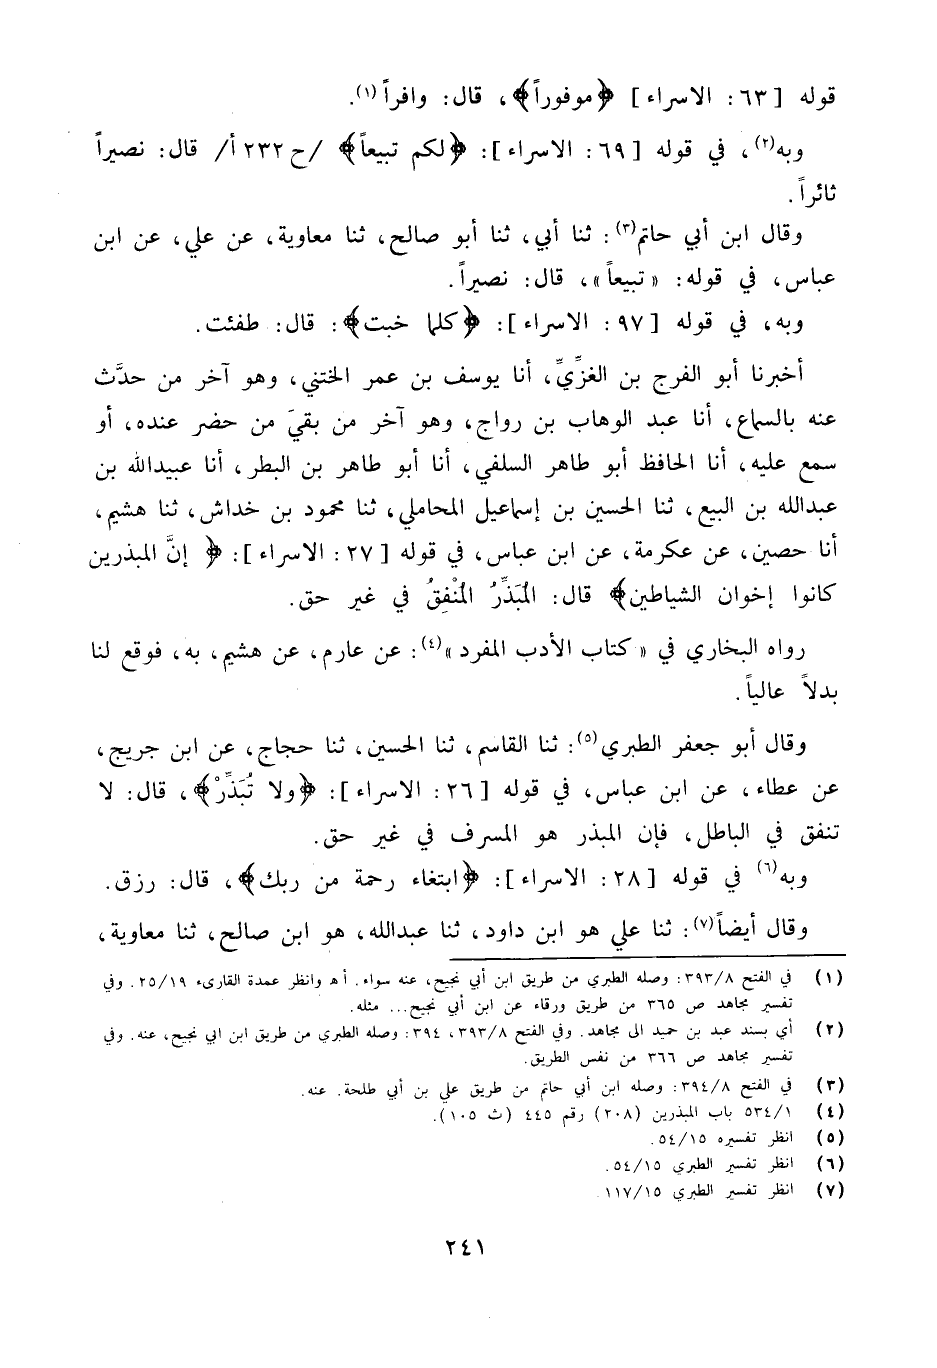 قوله [ ٦٣ : الاسراء ] ﴿موفوراً﴾ ، قال : وافراً(١).
وبه(٢) ، في قوله [ ٦٩ : الاسراء ] : ﴿لكم تبيعاً﴾ /ح ٢٣٢ أ/ قال : نصيراً
ثائراً .
وقال ابن أبي حاتم(٣) : ثنا أبي ، ثنا أبو صالح ، ثنا معاوية ، عن علي ، عن ابن
عباس ، في قوله : « تبيعاً » ، قال : نصيراً .
وبه ، في قوله [ ٩٧ : الاسراء ] : ﴿كلما خبت﴾ : قال : طفئت .
أخبرنا أبو الفرج بن الغزِّيِّ ، أنا يوسف بن عمر الختني ، وهو آخر من حدَّث
عنه بالسماع ، أنا عبد الوهاب بن رواج ، وهو آخر من بقيَ من حضر عنده ، أو
سمع عليه ، أنا الحافظ أبو طاهر السلفي ، أنا أبو طاهر بن البطر ، أنا عبيدالله بن
عبدالله بن البيع ، ثنا الحسين بن إسماعيل المحاملي ، ثنا محمود بن خداش ، ثنا هشيم ،
أنا حصين ، عن عكرمة ، عن ابن عباس ، في قوله [ ٢٧ : الاسراء ] : ﴿ إنَّ المبذرين
كانوا إخوان الشياطين﴾ قال : المُبَذِّرُ المُنْفِقُ في غير حق .
رواه البخاري في « كتاب الأدب المفرد »(٤) : عن عارم ، عن هشيم ، به ، فوقع لنا
بدلاً عالياً .
وقال أبو جعفر الطبري(٥) : ثنا القاسم ، ثنا الحسين ، ثنا حجاج ، عن ابن جريج ،
عن عطاء ، عن ابن عباس ، في قوله [ ٢٦ : الاسراء ] : ﴿ولا تُبَذِّرْ﴾ ، قال : لا
تنفق في الباطل ، فإن المبذر هو المسرف في غير حق .
وبه(٦) في قوله [ ٢٨ : الاسراء ] : ﴿ابتغاء رحمة من ربك﴾ ، قال : رزق .
وقال أيضاً(٧) : ثنا علي هو ابن داود ، ثنا عبدالله ، هو ابن صالح ، ثنا معاوية ،
(١) في الفتح ٣٩٣/٨ : وصله الطبري من طريق ابن أبي نجيح ، عنه سواء . أ هـ وانظر عمدة القارىء ٢٥/١٩ . وفي
تفسير مجاهد ص ٣٦٥ من طريق ورقاء عن ابن أبي نجيح ... مثله .
(٢) أي بسند عبد بن حميد الى مجاهد . وفي الفتح ٣٩٣/٨ ، ٣٩٤ : وصله الطبري من طريق ابن ابي نجيح ، عنه . وفي
تفسير مجاهد ص ٣٦٦ من نفس الطريق .
(٣) في الفتح ٣٩٤/٨ : وصله ابن أبي حاتم من طريق علي بن أبي طلحة . عنه .
(٤) ٥٣٤/١ باب المبذرين (٢٠٨) رقم ٤٤٥ (ث ١٠٥) .
(٥) انظر تفسيره ٥٤/١٥ .
(٦) انظر تفسير الطبري ٥٤/١٥ .
(٧) انظر تفسير الطبري ١١٧/١٥
٢٤١